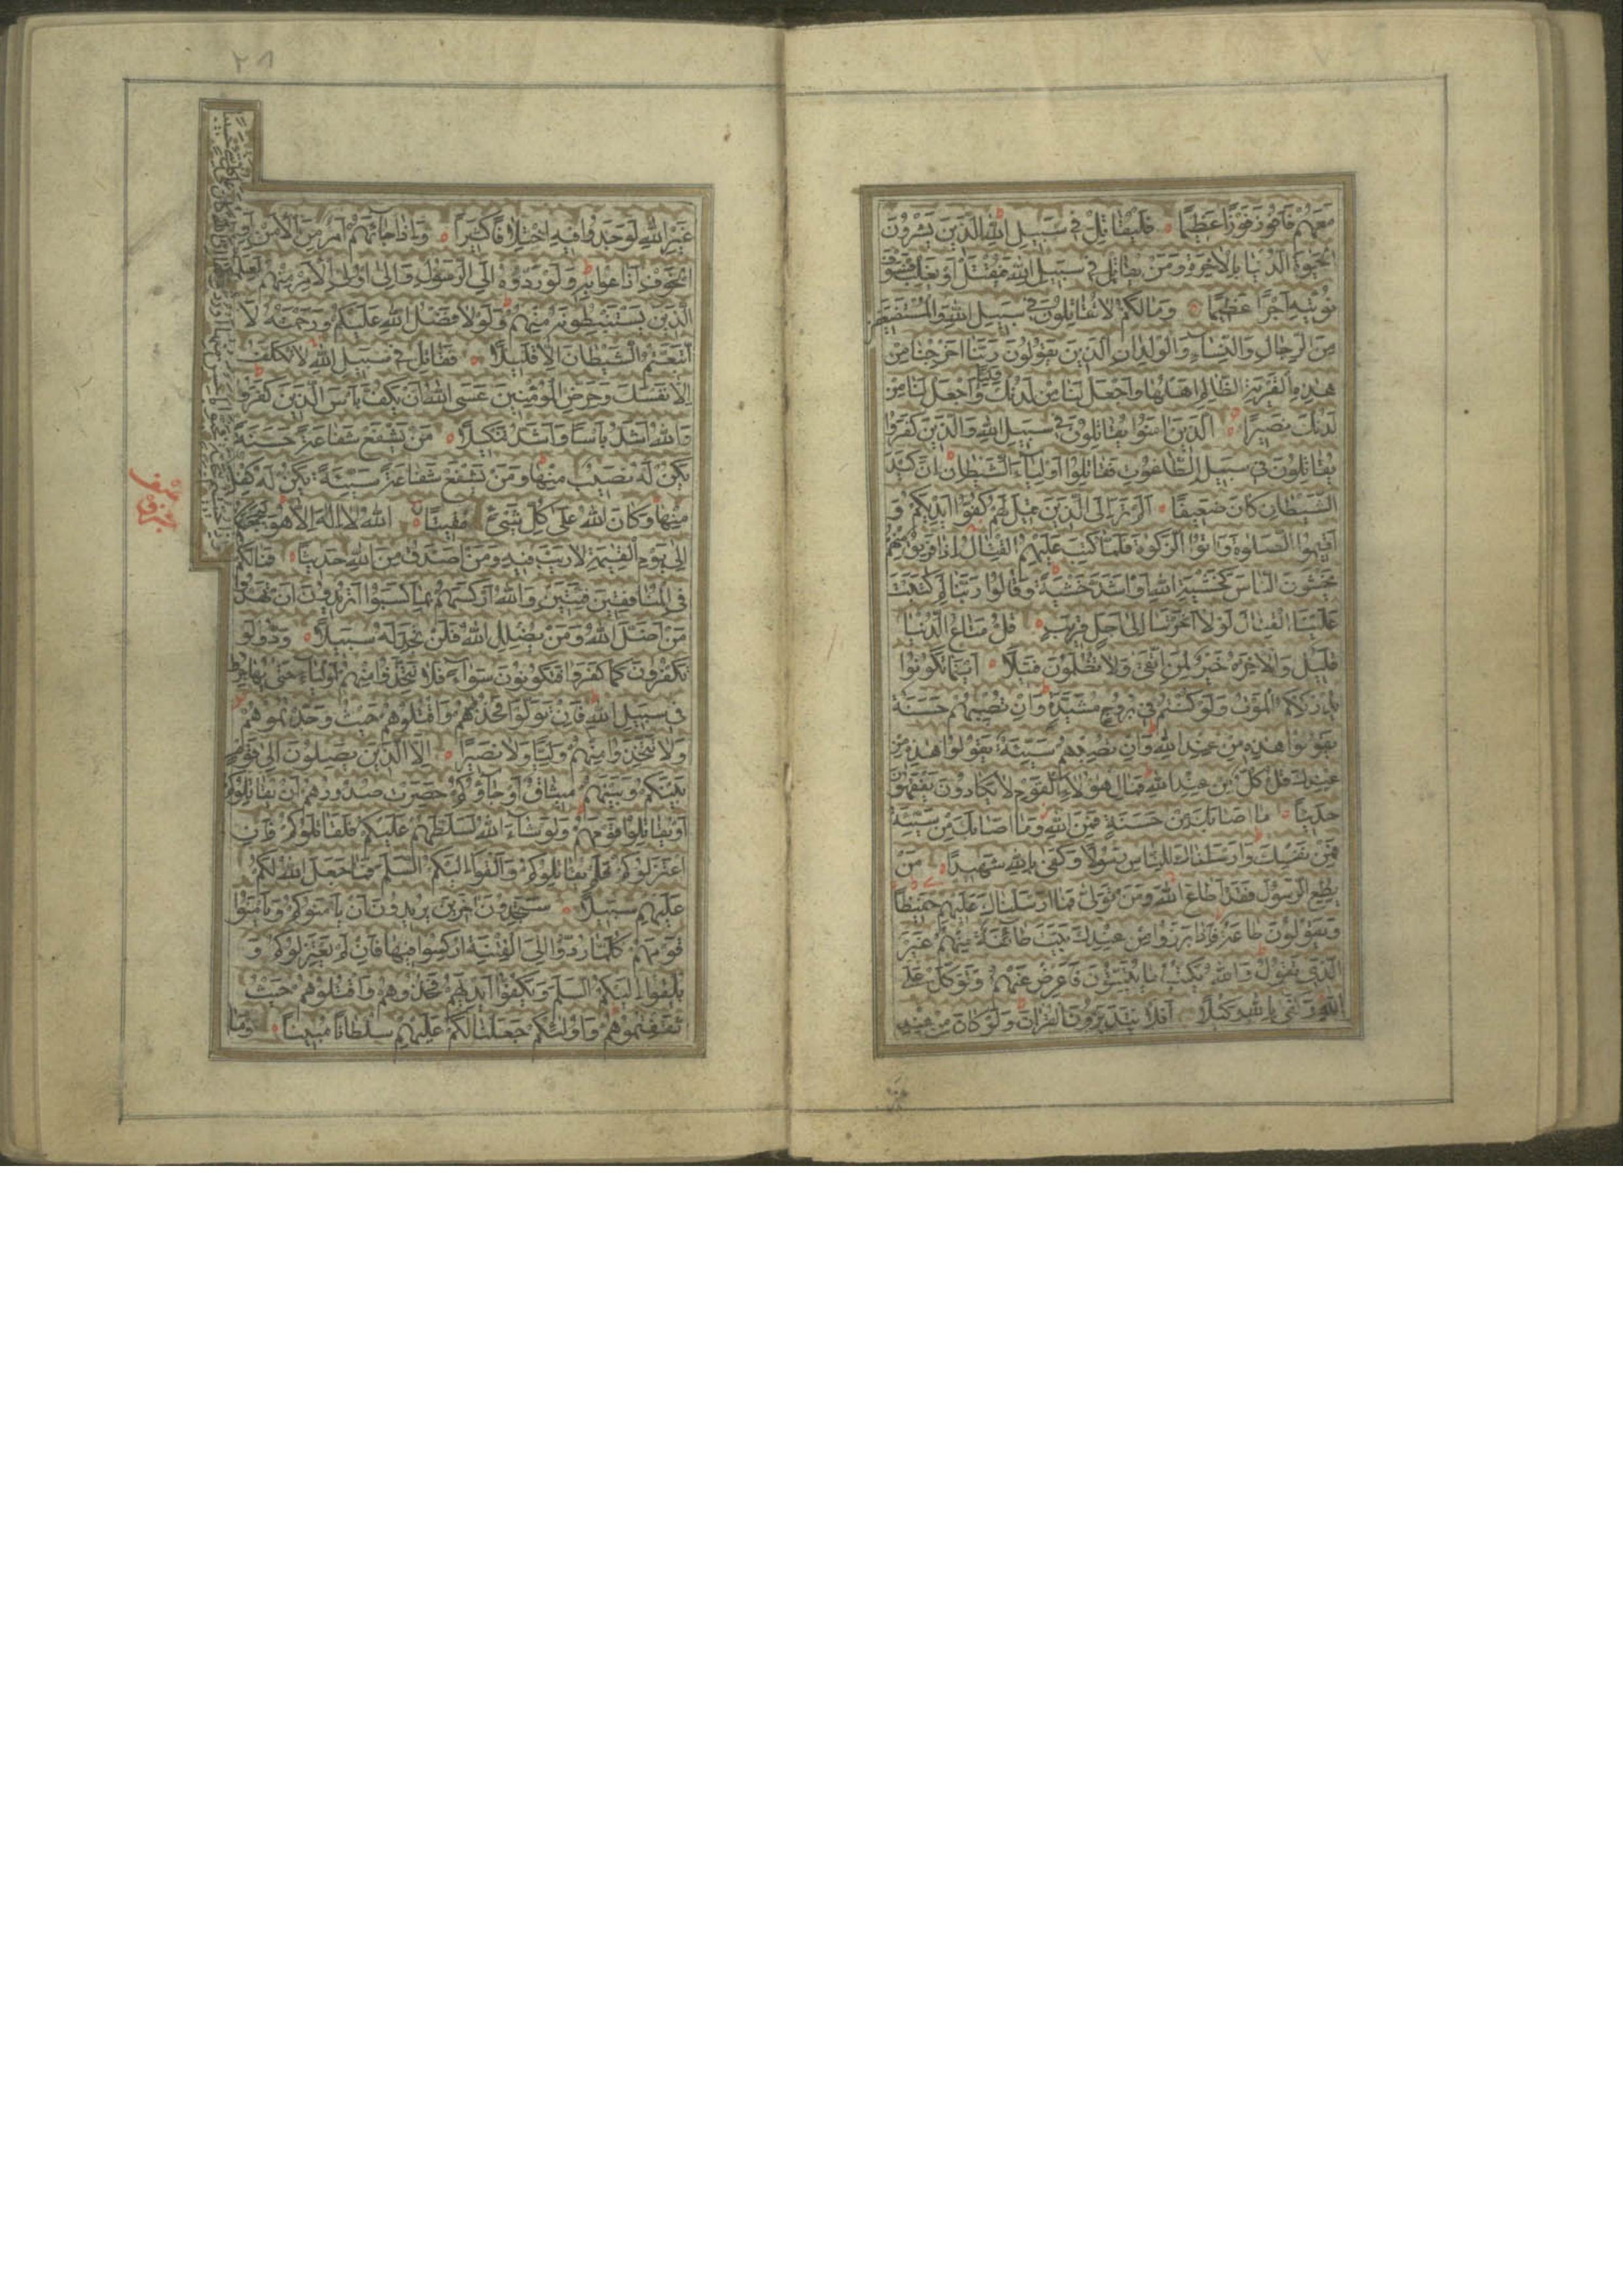 مَعَهُمْ فَاَفُوزَ فَوْزًا عَظِيمًا فَلْيُقَاتِلْ فِي سَبِيلِ اللّٰهِ الَّذِينَ يَشْرُونَ
الْحَيٰوةَ الدُّنْيَا بِالْاٰخِرَةِ وَمَنْ يُقَاتِلْ فِي سَبِيلِ اللّٰهِ فَيُقْتَلْ اَوْ يَغْلِبْ فَسَوْفَ
نُؤْتِيهِ اَجْرًا عَظِيمًا وَمَا لَكُمْ لَا تُقَاتِلُونَ فِي سَبِيلِ اللّٰهِ وَالْمُسْتَضْعَفِينَ
مِنَ الرِّجَالِ وَالنِّسَاءِ وَالْوِلْدَانِ الَّذِينَ يَقُولُونَ رَبَّنَا اَخْرِجْنَا مِنْ
هٰذِهِ الْقَرْيَةِ الظَّالِمِ اَهْلُهَا وَاجْعَلْ لَنَا مِنْ لَدُنْكَ وَلِيًّا وَاجْعَلْ لَنَا مِنْ
لَدُنْكَ نَصِيرًا اَلَّذِينَ اٰمَنُوا يُقَاتِلُونَ فِي سَبِيلِ اللّٰهِ وَالَّذِينَ كَفَرُوا
يُقَاتِلُونَ فِي سَبِيلِ الطَّاغُوتِ فَقَاتِلُوا اَوْلِيَاءَ الشَّيْطَانِ اِنَّ كَيْدَ
الشَّيْطَانِ كَانَ ضَعِيفًا اَلَمْ تَرَ اِلَى الَّذِينَ قِيلَ لَهُمْ كُفُّوا اَيْدِيَكُمْ وَ
اَقِيمُوا الصَّلٰوةَ وَاٰتُوا الزَّكٰوةَ فَلَمَّا كُتِبَ عَلَيْهِمُ الْقِتَالُ اِذَا فَرِيقٌ مِنْهُمْ
يَخْشَوْنَ النَّاسَ كَخَشْيَةِ اللّٰهِ اَوْ اَشَدَّ خَشْيَةً وَقَالُوا رَبَّنَا لِمَ كَتَبْتَ
عَلَيْنَا الْقِتَالَ لَوْلَا اَخَّرْتَنَا اِلٰى اَجَلٍ قَرِيبٍ قُلْ مَتَاعُ الدُّنْيَا
قَلِيلٌ وَالْاٰخِرَةُ خَيْرٌ لِمَنِ اتَّقٰى وَلَا تُظْلَمُونَ فَتِيلًا اَيْنَمَا تَكُونُوا
يُدْرِكْكُمُ الْمَوْتُ وَلَوْ كُنْتُمْ فِي بُرُوجٍ مُشَيَّدَةٍ وَاِنْ تُصِبْهُمْ حَسَنَةٌ
يَقُولُوا هٰذِهِ مِنْ عِنْدِ اللّٰهِ وَاِنْ تُصِبْهُمْ سَيِّئَةٌ يَقُولُوا هٰذِهِ مِنْ
عِنْدِكَ قُلْ كُلٌّ مِنْ عِنْدِ اللّٰهِ فَمَالِ هٰؤُلَاءِ الْقَوْمِ لَا يَكَادُونَ يَفْقَهُونَ
حَدِيثًا مَا اَصَابَكَ مِنْ حَسَنَةٍ فَمِنَ اللّٰهِ وَمَا اَصَابَكَ مِنْ سَيِّئَةٍ
فَمِنْ نَفْسِكَ وَاَرْسَلْنَاكَ لِلنَّاسِ رَسُولًا وَكَفٰى بِاللّٰهِ شَهِيدًا مَنْ
يُطِعِ الرَّسُولَ فَقَدْ اَطَاعَ اللّٰهَ وَمَنْ تَوَلّٰى فَمَا اَرْسَلْنَاكَ عَلَيْهِمْ حَفِيظًا
وَيَقُولُونَ طَاعَةٌ فَاِذَا بَرَزُوا مِنْ عِنْدِكَ بَيَّتَ طَائِفَةٌ مِنْهُمْ غَيْرَ
الَّذِي تَقُولُ وَاللّٰهُ يَكْتُبُ مَا يُبَيِّتُونَ فَاَعْرِضْ عَنْهُمْ وَتَوَكَّلْ عَلَى
اللّٰهِ وَكَفٰى بِاللّٰهِ وَكِيلًا اَفَلَا يَتَدَبَّرُونَ الْقُرْاٰنَ وَلَوْ كَانَ مِنْ عِنْدِ
٢٨
غَيْرِ اللّٰهِ لَوَجَدُوا فِيهِ اخْتِلَافًا كَثِيرًا وَاِذَا جَاءَهُمْ اَمْرٌ مِنَ الْاَمْنِ اَوِ
الْخَوْفِ اَذَاعُوا بِهِ وَلَوْ رَدُّوهُ اِلَى الرَّسُولِ وَاِلٰى اُولِي الْاَمْرِ مِنْهُمْ لَعَلِمَهُ
الَّذِينَ يَسْتَنْبِطُونَهُ مِنْهُمْ وَلَوْلَا فَضْلُ اللّٰهِ عَلَيْكُمْ وَرَحْمَتُهُ لَا
اتَّبَعْتُمُ الشَّيْطَانَ اِلَّا قَلِيلًا فَقَاتِلْ فِي سَبِيلِ اللّٰهِ لَا تُكَلَّفُ
اِلَّا نَفْسَكَ وَحَرِّضِ الْمُؤْمِنِينَ عَسَى اللّٰهُ اَنْ يَكُفَّ بَأْسَ الَّذِينَ كَفَرُوا
وَاللّٰهُ اَشَدُّ بَأْسًا وَاَشَدُّ تَنْكِيلًا مَنْ يَشْفَعْ شَفَاعَةً حَسَنَةً
يَكُنْ لَهُ نَصِيبٌ مِنْهَا وَمَنْ يَشْفَعْ شَفَاعَةً سَيِّئَةً يَكُنْ لَهُ كِفْلٌ
مِنْهَا وَكَانَ اللّٰهُ عَلٰى كُلِّ شَيْءٍ مُقِيتًا اَللّٰهُ لَا اِلٰهَ اِلَّا هُوَ لَيَجْمَعَنَّكُمْ
اِلٰى يَوْمِ الْقِيٰمَةِ لَا رَيْبَ فِيهِ وَمَنْ اَصْدَقُ مِنَ اللّٰهِ حَدِيثًا فَمَا لَكُمْ
فِي الْمُنَافِقِينَ فِئَتَيْنِ وَاللّٰهُ اَرْكَسَهُمْ بِمَا كَسَبُوا اَتُرِيدُونَ اَنْ تَهْدُوا
مَنْ اَضَلَّ اللّٰهُ وَمَنْ يُضْلِلِ اللّٰهُ فَلَنْ تَجِدَ لَهُ سَبِيلًا وَدُّوا لَوْ
تَكْفُرُونَ كَمَا كَفَرُوا فَتَكُونُونَ سَوَاءً فَلَا تَتَّخِذُوا مِنْهُمْ اَوْلِيَاءَ حَتّٰى يُهَاجِرُوا
فِي سَبِيلِ اللّٰهِ فَاِنْ تَوَلَّوْا فَخُذُوهُمْ وَاقْتُلُوهُمْ حَيْثُ وَجَدْتُمُوهُمْ
وَلَا تَتَّخِذُوا مِنْهُمْ وَلِيًّا وَلَا نَصِيرًا اِلَّا الَّذِينَ يَصِلُونَ اِلٰى قَوْمٍ
بَيْنَكُمْ وَبَيْنَهُمْ مِيثَاقٌ اَوْ جَاؤُكُمْ حَصِرَتْ صُدُورُهُمْ اَنْ يُقَاتِلُوكُمْ
اَوْ يُقَاتِلُوا قَوْمَهُمْ وَلَوْ شَاءَ اللّٰهُ لَسَلَّطَهُمْ عَلَيْكُمْ فَلَقَاتَلُوكُمْ فَاِنِ
اعْتَزَلُوكُمْ فَلَمْ يُقَاتِلُوكُمْ وَاَلْقَوْا اِلَيْكُمُ السَّلَمَ فَمَا جَعَلَ اللّٰهُ لَكُمْ
عَلَيْهِمْ سَبِيلًا سَتَجِدُونَ اٰخَرِينَ يُرِيدُونَ اَنْ يَأْمَنُوكُمْ وَيَأْمَنُوا
قَوْمَهُمْ كُلَّمَا رُدُّوا اِلَى الْفِتْنَةِ اُرْكِسُوا فِيهَا فَاِنْ لَمْ يَعْتَزِلُوكُمْ وَ
يُلْقُوا اِلَيْكُمُ السَّلَمَ وَيَكُفُّوا اَيْدِيَهُمْ فَخُذُوهُمْ وَاقْتُلُوهُمْ حَيْثُ
ثَقِفْتُمُوهُمْ وَاُولٰئِكُمْ جَعَلْنَا لَكُمْ عَلَيْهِمْ سُلْطَانًا مُبِينًا وَمَا